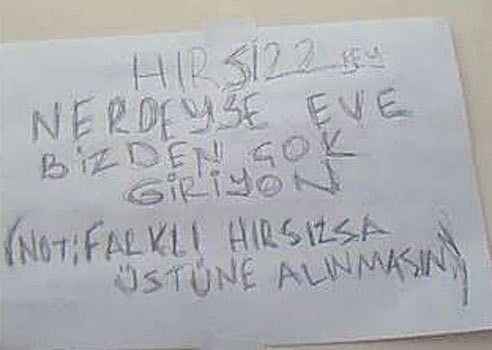 HIRSIZZ BEY
NERDEYSE EVE
BİZDEN ÇOK
GİRİYON
(NOT: FARKLI HIRSIZSA
ÜSTÜNE ALINMASIN)